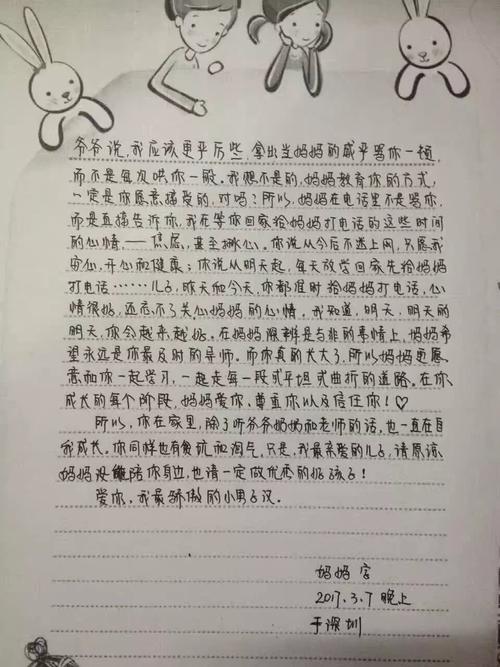 爷爷说，我应该更严厉些，拿出当妈妈的威严骂你一顿，
而不是每次哄你一般。我想不是的，妈妈教育你的方式，
一定是你愿意接受的，对吗？所以，妈妈在电话里不是骂你，
而是直接告诉你，我在等你回家给妈妈打电话的这些时间
的心情，——焦虑，甚至揪心。你说从今后不迷上网，只愿我
安心，开心和健康；你说从明天起，每天放学回家先给妈妈
打电话……儿子，昨天和今天，你都准时给妈妈打电话，心
情很好，还忘不了关心妈妈的心情。我知道，明天，明天的
明天，你会越来越好。在妈妈深辨是与非的事情上，妈妈希
望永远是你最及时的导师。而你真的长大了，所以妈妈更愿
意和你一起学习，一起走每一段或平坦或曲折的道路。在你
成长的每个阶段，妈妈爱你、尊重你以及信任你！♡
所以，你在家里，除了听爷爷奶奶和老师的话，也一直在自
我成长。你同样也有贪玩和淘气，只是，我最亲爱的儿子，请原谅
妈妈没能陪你身边，也请一定做优秀的好孩子！
爱你，我最骄傲的小男子汉。
妈妈字
2017.3.7 晚上
于深圳